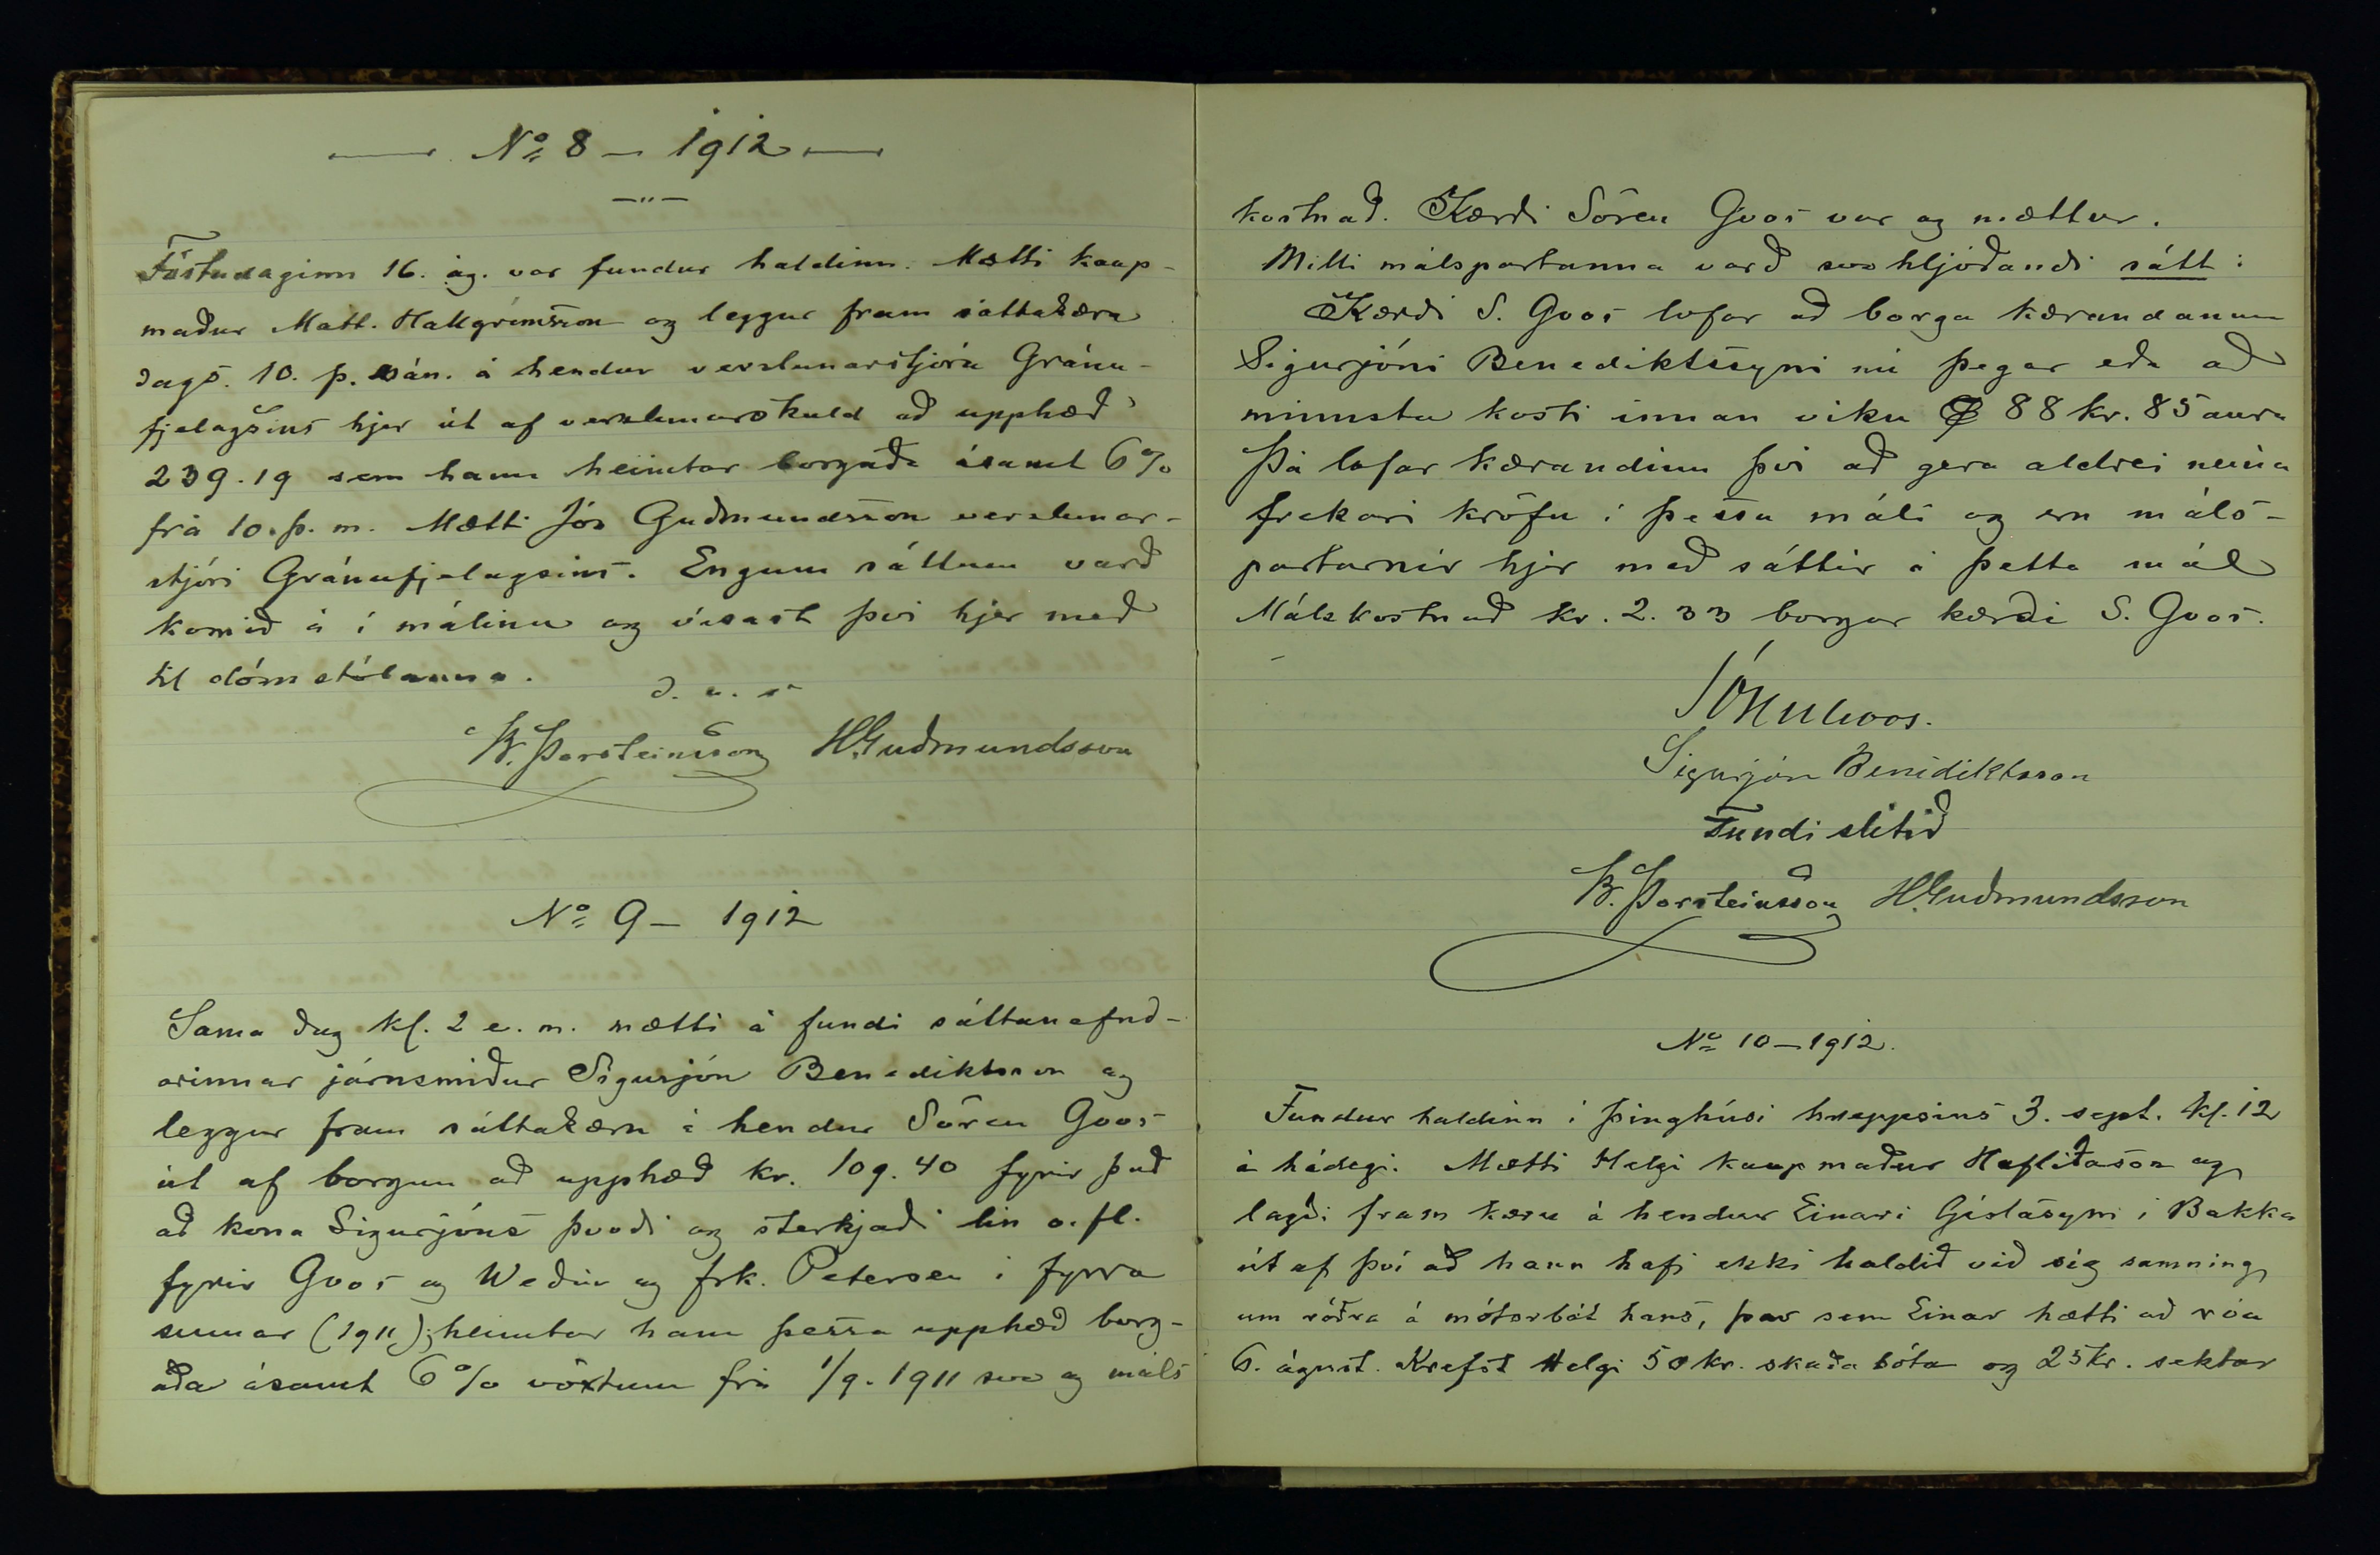 No 8 – 1912
–"–
Föstudaginn 16. ág. var fundur haldinn. Mætti kaup-
maður Matt. Hallgrímsson og leggur fram sáttakæru
dags. 10. þ. mán. á hendur verslunarstjóra Gránu-
fjelagsins hjer út af verslunarskuld að upphæð
239.19 sem hann heimtar borgaða ásamt 6%
frá 10. þ. m. Mætti Jón Guðmundsson verslunar-
stjóri Gránufjelagsins. Engum sáttum varð
komið á í málinu og vísast því hjer með
til dómstólanna.
d. u. s
B. Þorsteinsson HGuðmundsson
No 9 – 1912
Sama dag kl. 2 e. m. mætti á fundi sáttanefnd-
arinnar járnsmiður Sigurjón Benediktsson og
leggur fram sáttakæru á hendur Sören Goos
út af borgun að upphæð kr. 109.40 fyrir það
að kona Sigurjóns þvoði og sterkjaði lín o. fl.
fyrir Goos og Weðin og frk. Petersen í fyrra
sumar (1911); heimtar hann þessa upphæð borg-
aða ásamt 6% vöxtum frá 1/9. 1911 svo og máls
kostnað. Kærði Sören Goos var og mættur.
Milli málspartanna varð svo hljóðandi sátt:
Kærði S. Goos lofar að borga kærandanum
Sigurjóni Benediktssyni nú þegar eða að
minnsta kosti innan viku 88 kr. 85 aura
Þá lofar kærandinn því að gera aldrei neina
frekari kröfu í þessu máli og eru máls-
partarnir hjer með sáttir á þetta mál
Málskostnað kr. 2.33 borgar kærði S. Goos.
Goos.
Sigurjón Benidiktsson
Fundi slitið
B. Þorsteinsson HGuðmundsson
No 10 – 1912.
Fundur haldinn í þinghúsi hreppsins 3. sept. kl. 12
á hádegi. Mætti Helgi kaupmaður Hafliðason og
lagði fram kæru á hendur Einari Gíslasyni í Bakka
út af því að hann hafi ekki haldið við sig samning
um róðra á mótorbát hans, þar sem Einar hætti að róa
6. ágúst. Krefst Helgi 50 kr. skaðabóta og 25 kr. sektar